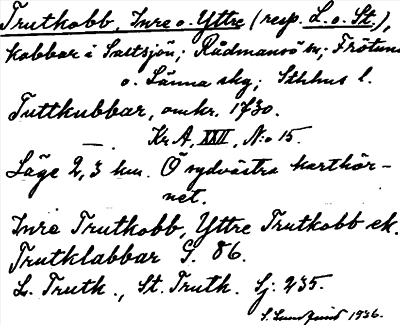 Trutkobb, Inre o. Yttre (resp. L. o. St.),
kobbar i Saltsjön; Rådmansö sn; Frötuna
o. Länna skg; Sthlms l.
Tuttkubbar, omkr. 1730.
Kr A, XXII, N:o 15.
Läge 2,3 km. Ö sydvästra karthör-
net.
Inre Trutkobb, Yttre Trutkobb ek.
Trutklabbar G. 86.
L. Trutk., St. Trutk. Sj: 235.
1936.